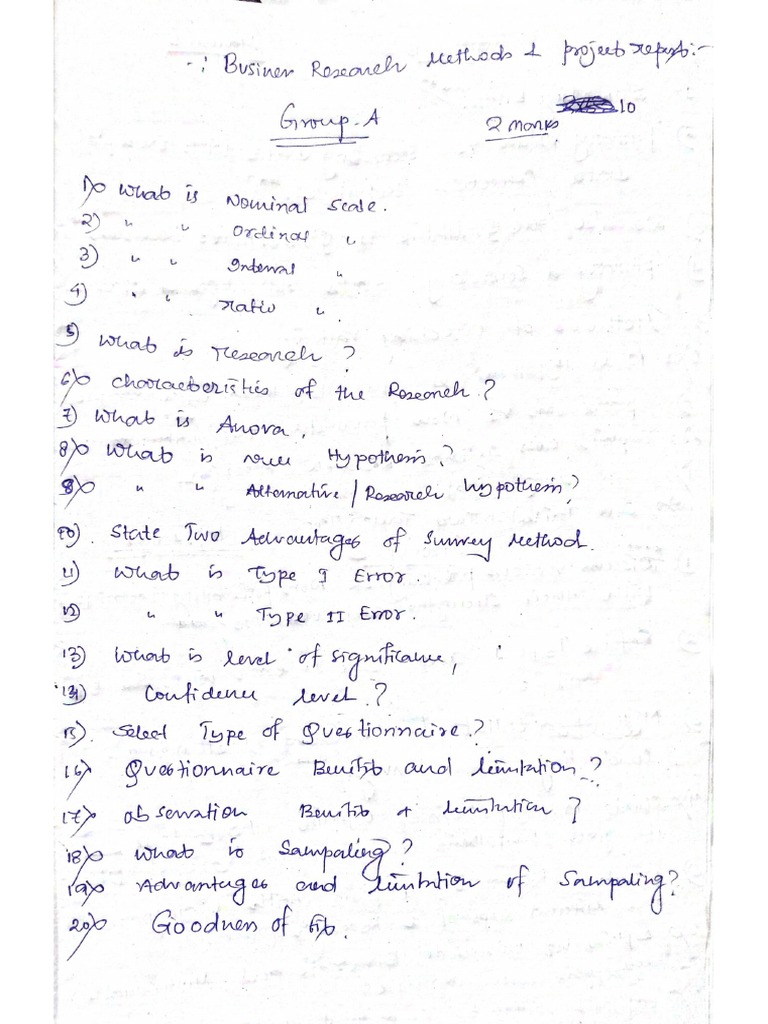 -: Business Research Methods & project report:-
Group-A 2 marks 10
1) What is Nominal Scale.
2) " " Ordinal "
3) " " Interval "
4) " " ratio "
5) What is research?
6) Characteristics of the Research?
7) What is Anova,
8) What is null Hypothesis?
9) " " Alternative/Research hypothesis?
10). State Two Advantages of Survey Method.
11) What is Type I Error.
12) " " Type II Error.
13) What is level of significance,
14) Confidence level?
15). Select Type of Questionnaire?
16) Questionnaire Benifits and limitation?
17) observation Benifits & limitation?
18) What is Sampaling?
19) Advantages and limitation of Sampaling?
20) Goodness of fit.